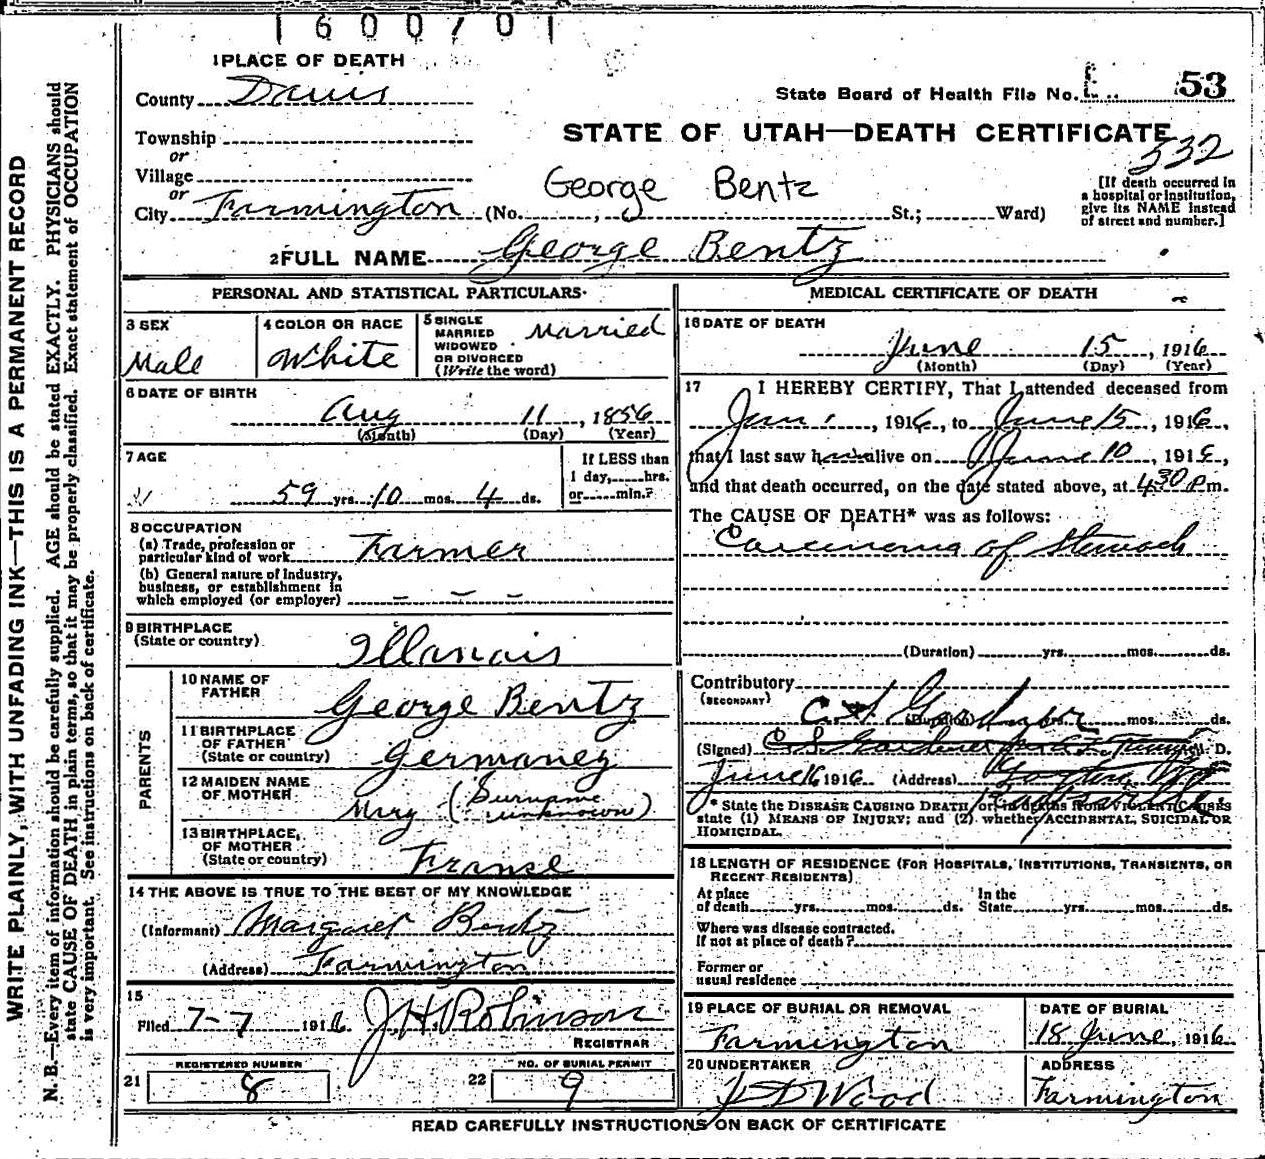 1600701
1 PLACE OF DEATH
County Davis
State Board of Health File No. E 53
Township
STATE OF UTAH—DEATH CERTIFICATE
or
332
Village
or
George Bentz
[If death occurred in a hospital or institution, give its NAME instead of street and number.]
City Farmington (No. , St.; Ward)
2 FULL NAME George Bentz
PERSONAL AND STATISTICAL PARTICULARS
3 SEX
Male
4 COLOR OR RACE
White
5 SINGLE MARRIED WIDOWED OR DIVORCED (Write the word)
Married
6 DATE OF BIRTH
Aug 11, 1856
(Month) (Day) (Year)
7 AGE
59 yrs. 10 mos. 4 ds.
If LESS than 1 day, hrs. or min.?
8 OCCUPATION
(a) Trade, profession or particular kind of work Farmer
(b) General nature of industry, business, or establishment in which employed (or employer) – – –
9 BIRTHPLACE
(State or country) Illanois
PARENTS
10 NAME OF FATHER George Bentz
11 BIRTHPLACE OF FATHER (State or country) Germaney
12 MAIDEN NAME OF MOTHER Mary (Surname unknown)
13 BIRTHPLACE OF MOTHER (State or country) Franse
14 THE ABOVE IS TRUE TO THE BEST OF MY KNOWLEDGE
(Informant) Margaret Bentz
(Address) Farmington
15
Filed 7-7 1916 J.H. Robinson
REGISTRAR
21 REGISTERED NUMBER 8
22 NO. OF BURIAL PERMIT 9
MEDICAL CERTIFICATE OF DEATH
16 DATE OF DEATH
June 15, 1916
(Month) (Day) (Year)
17 I HEREBY CERTIFY, That I attended deceased from
Jan 1, 1916, to June 15, 1916,
that I last saw h alive on June 10, 1916,
and that death occurred, on the date stated above, at 4 30 P m.
The CAUSE OF DEATH* was as follows:
Carcinoma of Stomach
(Duration) yrs. mos. ds.
Contributory
(SECONDARY)
(Duration) yrs. mos. ds.
(Signed) M. D.
June 16 1916 (Address)
* State the DISEASE CAUSING DEATH, or, in deaths from VIOLENT CAUSES
state (1) MEANS OF INJURY; and (2) whether ACCIDENTAL, SUICIDAL OR
HOMICIDAL.
18 LENGTH OF RESIDENCE (FOR HOSPITALS, INSTITUTIONS, TRANSIENTS, OR
RECENT RESIDENTS)
At place of death yrs. mos. ds. In the State yrs. mos. ds.
Where was disease contracted,
if not at place of death?
Former or
usual residence
19 PLACE OF BURIAL OR REMOVAL
Farmington
DATE OF BURIAL
18 June, 1916
20 UNDERTAKER
J D Wood
ADDRESS
Farmington
READ CAREFULLY INSTRUCTIONS ON BACK OF CERTIFICATE
WRITE PLAINLY, WITH UNFADING INK—THIS IS A PERMANENT RECORD
N. B.—Every item of information should be carefully supplied. AGE should be stated EXACTLY. PHYSICIANS should
state CAUSE OF DEATH in plain terms, so that it may be properly classified. Exact statement of OCCUPATION
is very important. See instructions on back of certificate.